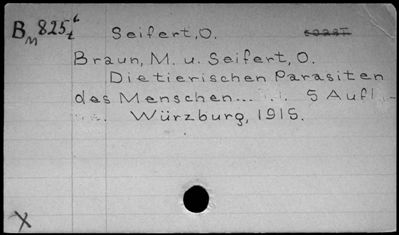 B M 825 t 6 Seifert, O.
Braun, M. u. Seifert, O.
Die tierischen Parasiten
des Menschen... 5 Aufl.
Würzburg, 1915.
X